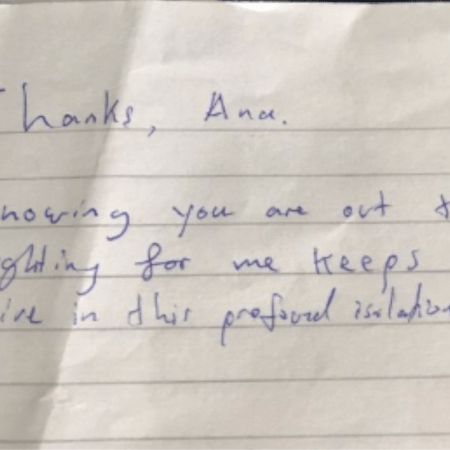 Thanks, Ana.
nowing you are out t
ghting for me keeps
ive in this profound isolation